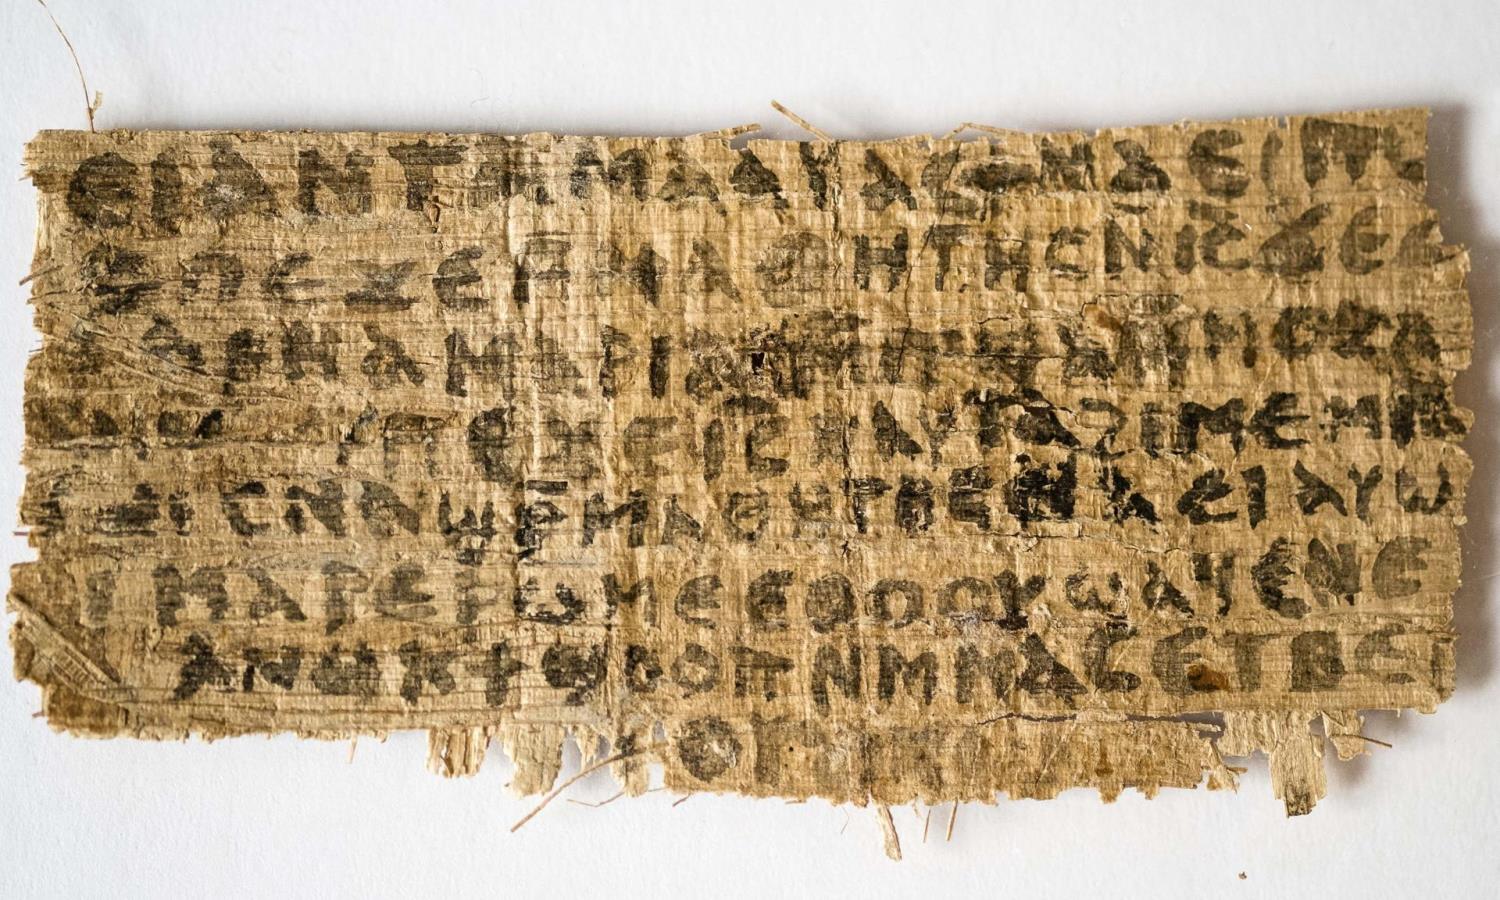 ⲉⲓⲁⲛ ⲧⲁⲙⲁⲁⲩ ⲁⲥϯ ⲛⲁⲉⲓ ⲡ
ⲡⲉϫⲉ ⲙⲙⲁⲑⲏⲧⲏⲥ ⲛⲓⲥ ϫⲉ
ⲁⲣⲛⲁ ⲙⲁⲣⲓⲁⲙ ⲙⲡϣⲁ ⲙⲙⲟⲥ ⲁ
ⲡⲉϫⲉ ⲓⲥ ⲛⲁⲩ ⲧⲁϩⲓⲙⲉ ⲙⲛ
ⲥⲛⲁϣⲣⲙⲁⲑⲏⲧⲏⲥ ⲛⲁⲉⲓ ⲁⲩⲱ
ⲙⲁⲣⲉⲣⲱⲙⲉ ⲉⲑⲟⲟⲩ ϣⲁϥⲉ ⲛⲉ
ⲁⲛⲟⲕ ϯϣⲟⲟⲡ ⲛⲙⲙⲁⲥ ⲉⲧⲃⲉ